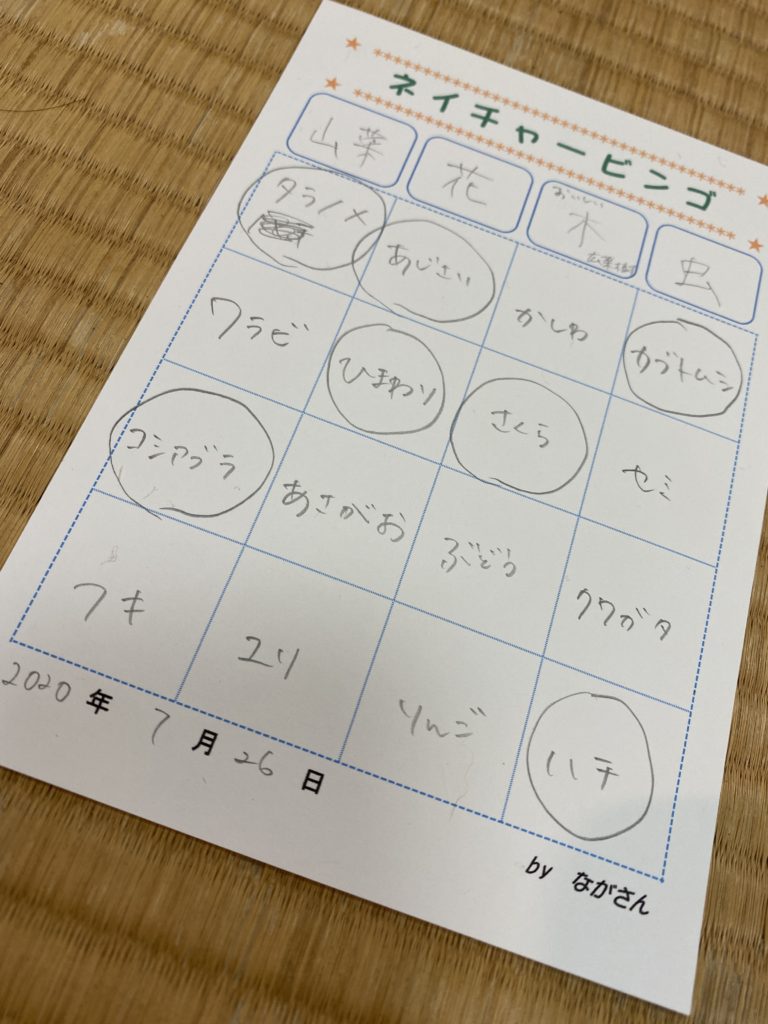 ネイチャービンゴ
山菜 花 おいしい 木 広葉樹 虫
タラノメ あじさい かしわ カブトムシ
ワラビ ひまわり さくら セミ
コシアブラ あさがお ぶどう クワガタ
フキ ユリ りんご ハチ
2020年 7月26日
by ながさん